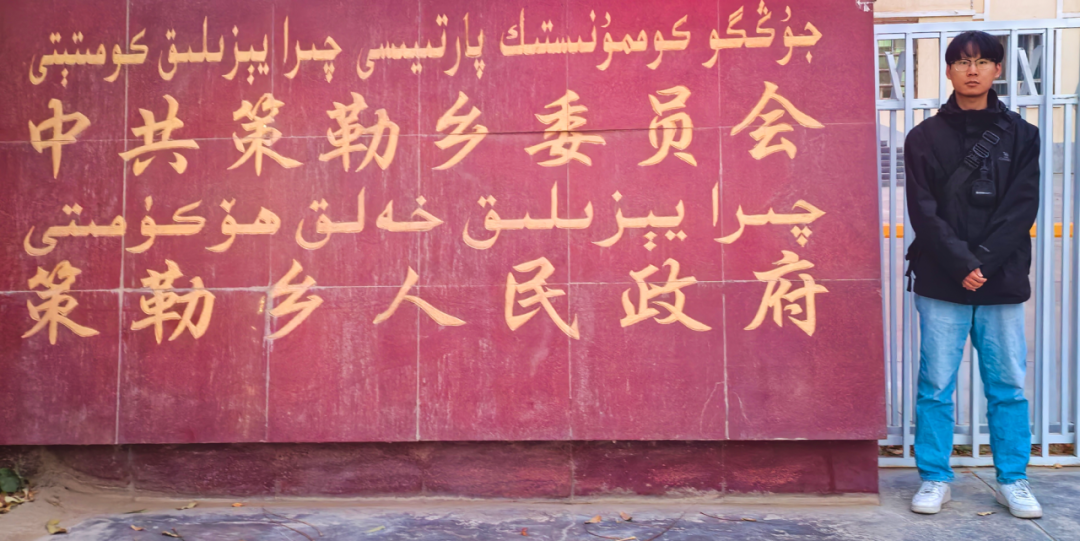 جۇڭگو كوممۇنىستىك پارتىيىسى چىرا يېزىلىق كومىتېتى
中共策勒乡委员会
چىرا يېزىلىق خەلق ھۆكۈمىتى
策勒乡人民政府